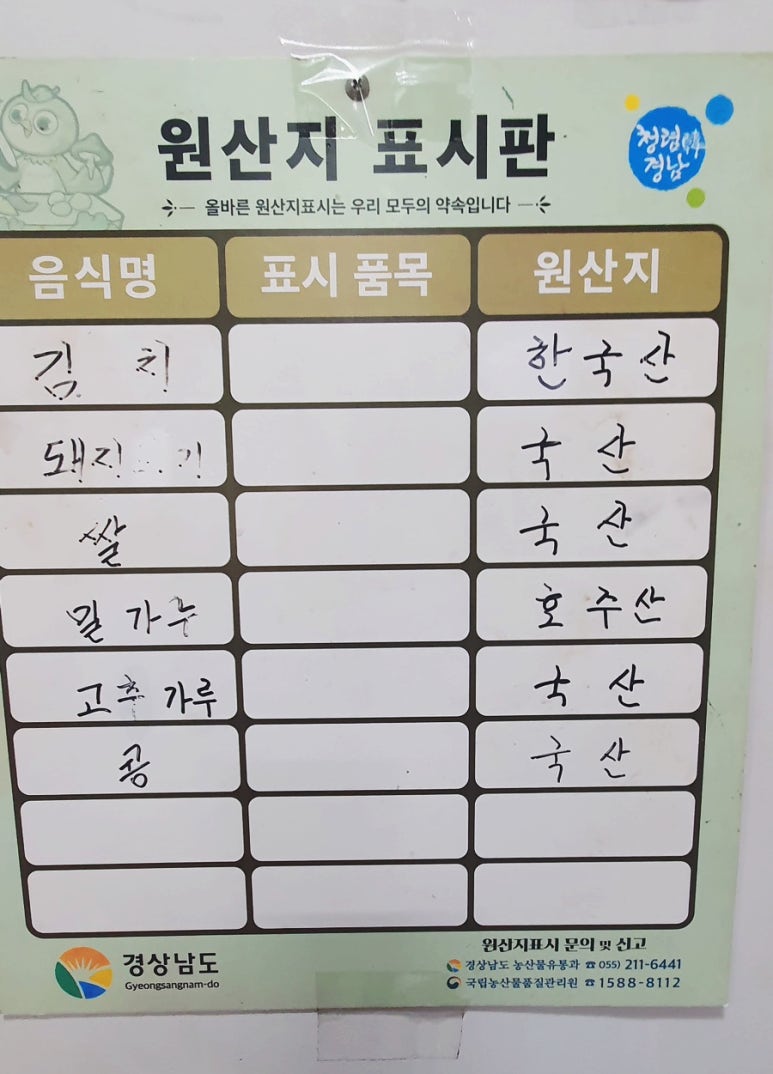 원산지 표시판
청렴
경남
올바른 원산지표시는 우리 모두의 약속입니다
음식명 표시 품목 원산지
김 치 한국산
국 산
쌀 국 산
밀 가루 호주산
고추 가루 국 산
콩 국 산
경상남도
Gyeongsangnam-do
원산지표시 문의 및 신고
경상남도 농산물유통과 ☎ 055) 211-6441
국립농산물품질관리원 ☎ 1588-8112